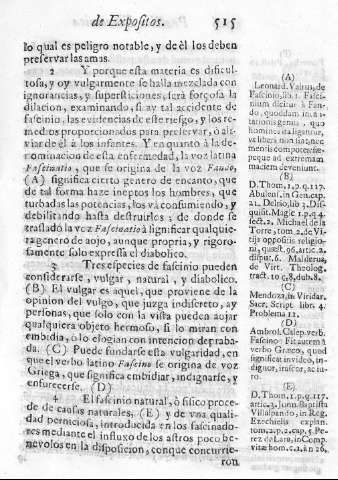 de Expositos. 515
lo qual es peligro notable, y de èl los deben
preservar las amas.
2 Y porque esta materia es dificul-
tosa, y oy vulgarmente se halla mezclada con
ignorancias, y supersticiones, serà forçosa la
dilacion, examinando, si ay tal accidente de
fascinio, las evidencias de este riesgo, y los re-
medios proporcionados para preservar, ò ali-
viar de èl à los infantes. Y en quanto à la de-
nominacion de esta enfermedad, la voz latina
Fascinatio, que se origina de la voz Fando,
(A) significa cierto genero de encanto, que
de tal forma haze ineptos los hombres, que
turbadas las potencias, los và consumiendo, y
debilitando hasta destruirles; de donde se
trasladò la voz Fascinatio à significar qualquie-
ra genero de aojo, aunque propria, y rigoro-
samente solo expressa el diabolico.
3 Tres especies de fascinio pueden
considerarse, vulgar, natural, y diabolico.
(B) El vulgar es aquel, que proviene de la
opinion del vulgo, que juzga indiscreto, ay
personas, que solo con la vista pueden aojar
qualquiera objeto hermoso, si lo miran con
embidia, ò lo elogian con intencion depraba-
da. (C) Puede fundarse esta vulgaridad, en
que el verbo latino Fascino se origina de voz
Griega, que significa embidiar, indignarse, y
enfurecerse. (D)
4 El fascinio natural, ò fisico proce-
de de causas naturales, (E) y de vna quali-
dad perniciosa, introducida en los fascinado-
res mediante el influxo de los astros poco be-
nevolos en la disposicion, que concurrie-
ron
(A)
Leonard. Vairus, de
Fascino, lib. 1. Fasci-
nium dicitur à Fan-
do, quoddam in
tationis genus, quo
homines ita ligantur,
vt liberi non sint
mentis compotes, 
peque ad extremam
maciem deveniunt.
(B)
D. Thom. 1. p. q. 117.
Abulens. in Gen. cap.
21. Delrio, lib. 3. Dis-
quisit. Magic. 1. p. q. 4
sect. 2. Michael de la
Torre, tom. 2. de Vi-
tijs oppositis religio-
ni, quæst. 96. artic. 2.
disput. 6. Malderus,
de Virt. Theolog.
tract. 10 c. 8. dub. 8.
(C)
Mendoza, in Viridar.
Sacr. Script. lib. 4.
Problema 12.
(D)
Ambros. Calep. verb.
Fascino: Fit autem à
verbo Græco, quod
significat invideo, in-
dignor, irascor, ac iu-
ro.
(E)
D. Thom. 1. p. q. 117.
artic. 3. Joan. Baptista
Villalpando, in Reg.
Ezechielis explan.
tom. 2. p. 2. cap. 5. Pe-
rez de Lara, in Comp.
vitæ hom. c. 2. n. 26.